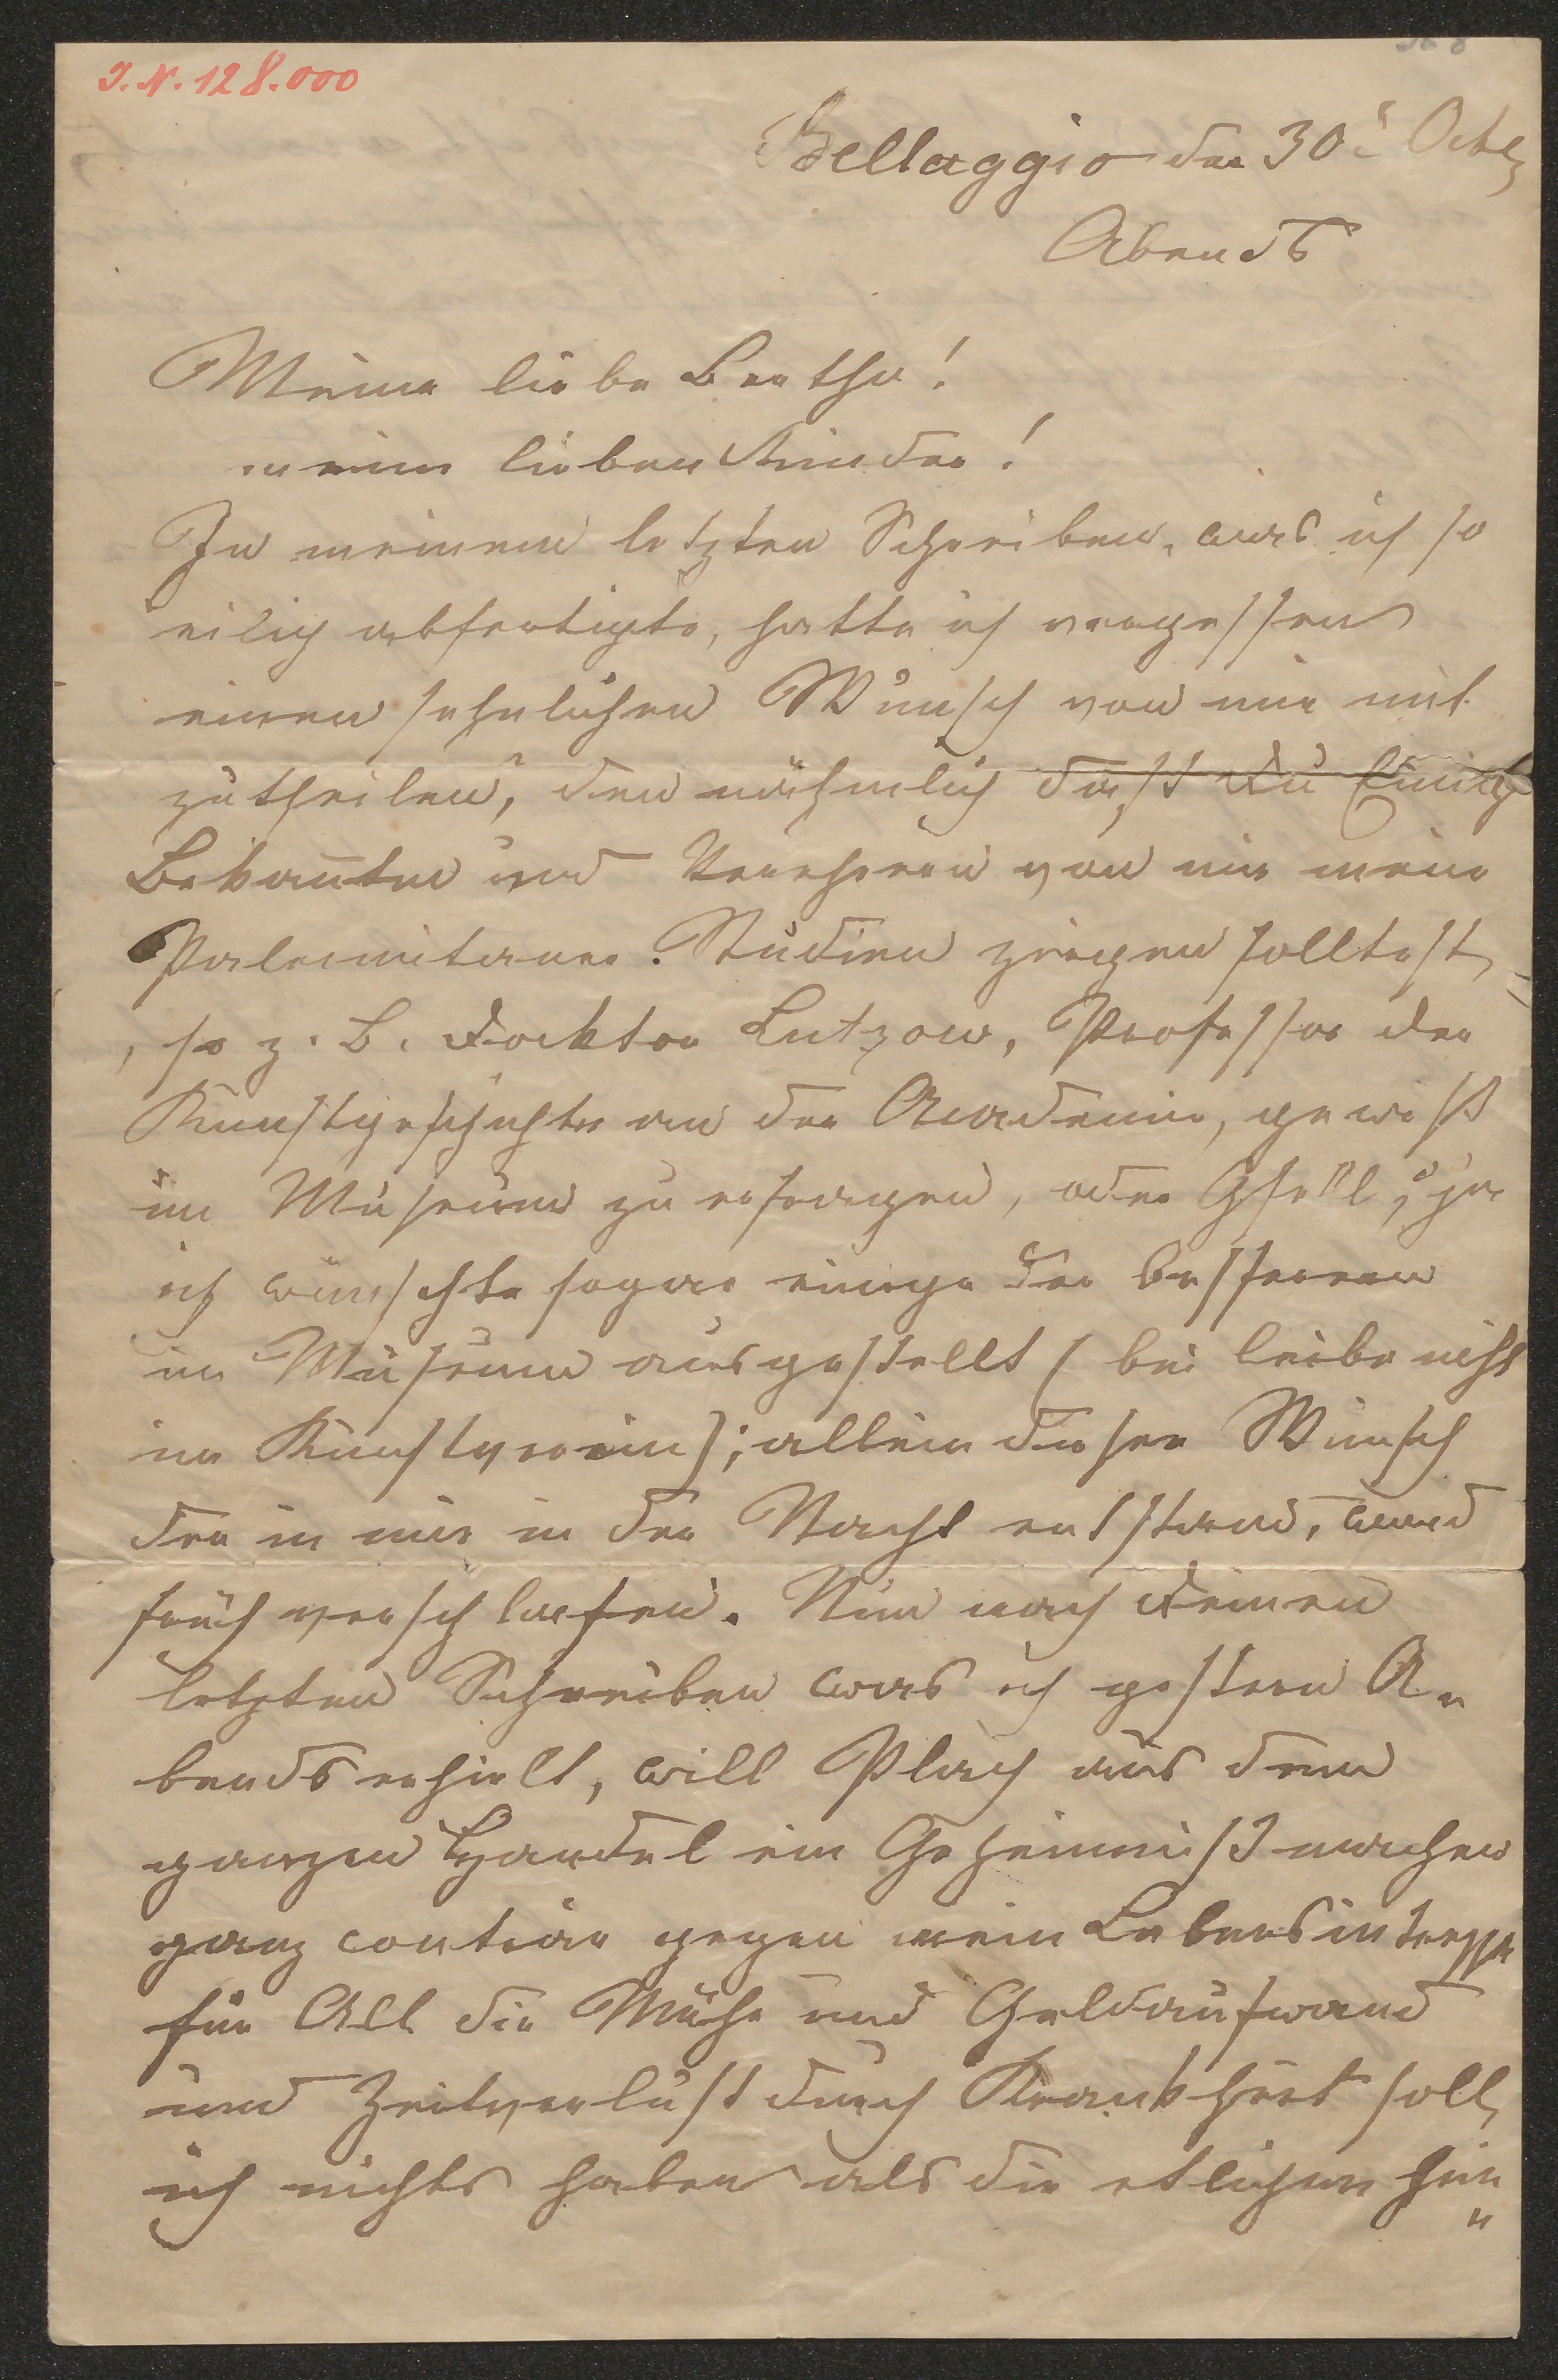 J. N. 128.000
Bellaggio den 30t Octb
Abends
Meine liebe Bertha!
meine lieben Kinder!
In meinem letzten Schreiben, was ich so
eilig abfertigte, hatte ich vergessen
einen sehnlichen Wunsch von mir mit
zutheilen, den nähmlich daß du Einige
Bekannten und Verehrern von mir meine
Palermitaner Studien zeigen solltest,
, so z. B. Docktor Lutzow, Professor der
Kunstgeschichte an der Academie, gewiß
im Museum zu erfragen, oder Gsell, ja
ich wünschte sogar einige der besseren
im Museum ausgestellt (bei leibe nicht
im Kunstverein); allein dieser Wunsch
der in mir in der Nacht entstand, ward
früh verschlafen. Nun nach deinem
letzten Schreiben was ich gestern A„
bends erhielt, will Plach aus dem
ganzen Handel ein Geheimniß machen
ganz conträr gegen mein Lebensinteresse
für All die Mühe und Geldaufwand
und Zeitverlust durch Krankheit soll
ich nichts haben als die etlichen hun„